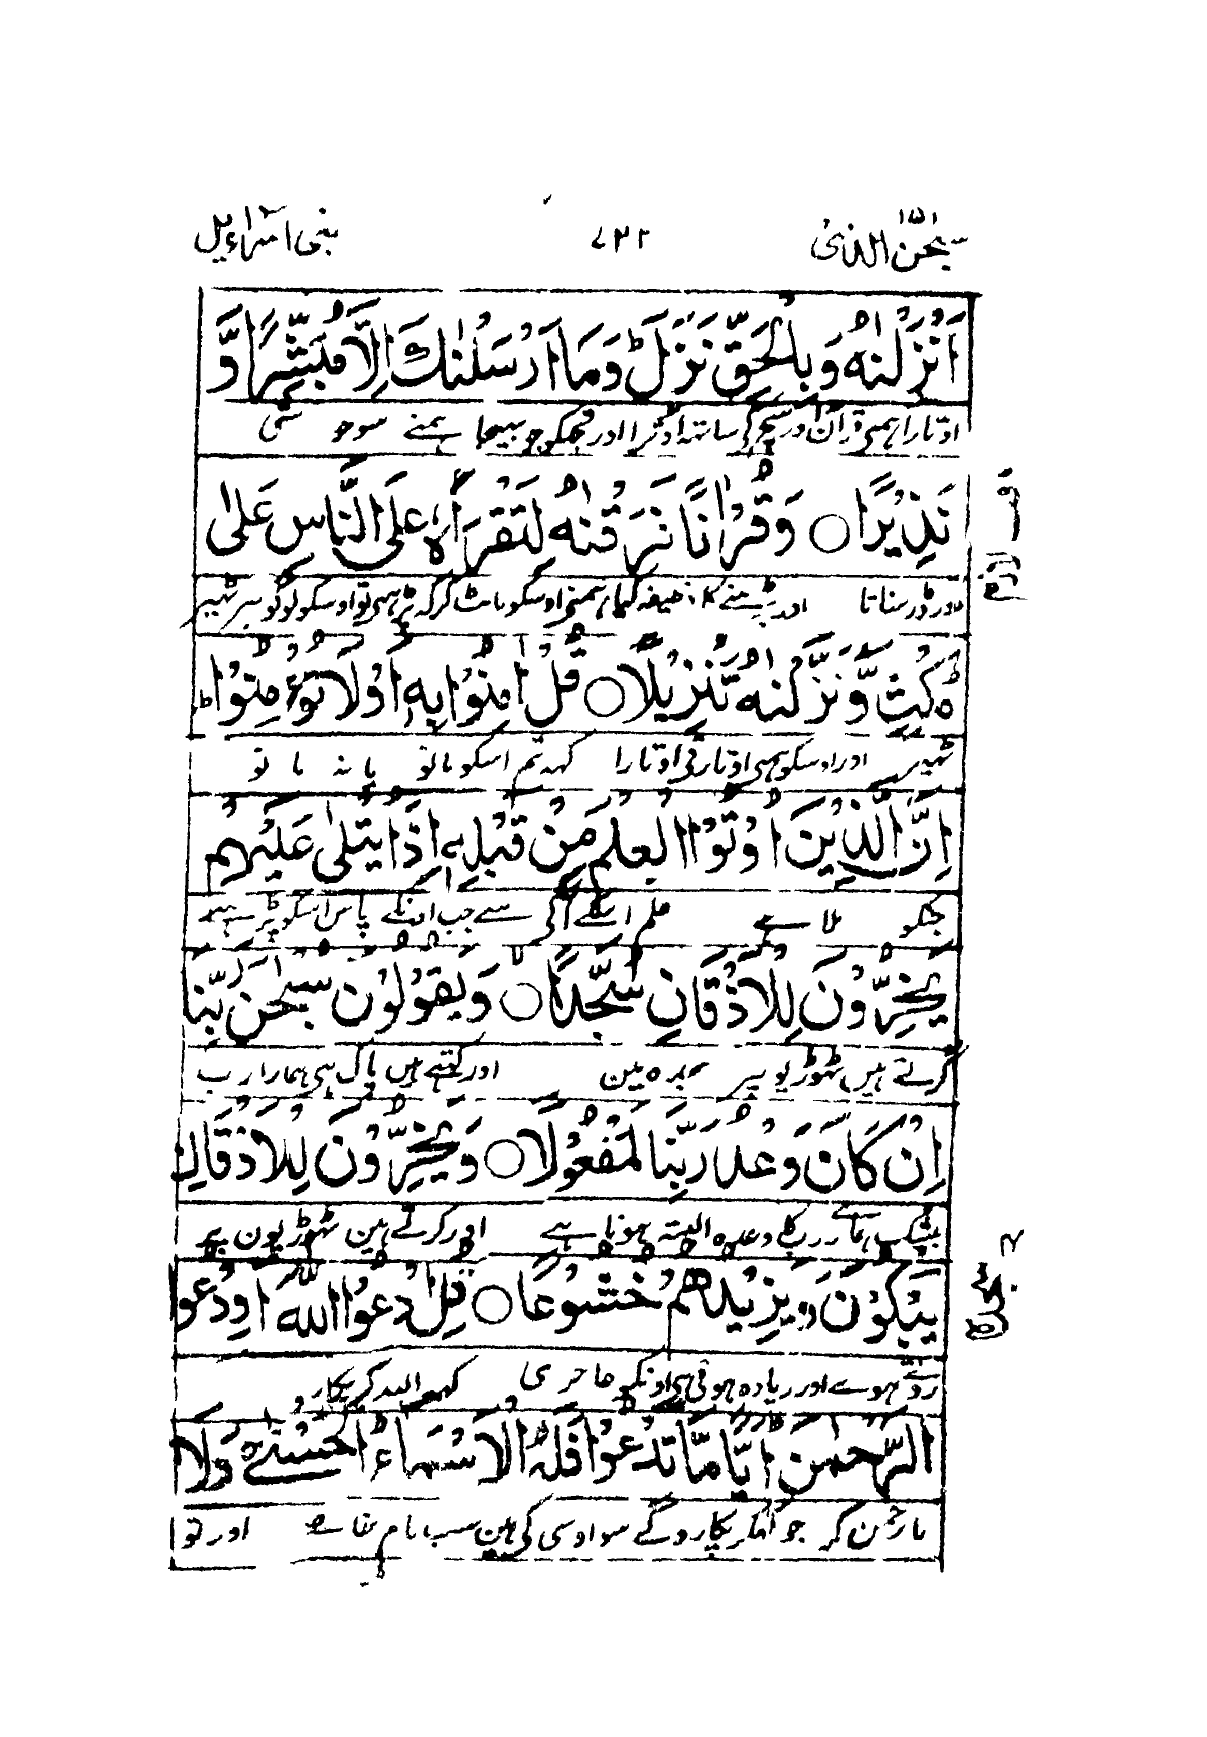 سبحن الذی ۱۵ ۷۲۲ بنی اسراءیل
اَنْزَلْنٰهُ وَبِالْحَقِّ نَزَلَ ؕ وَمَا اَرْسَلْنٰكَ اِلَّا مُبَشِّرًا وَّ
اوتارا ہمنے قرآن اور سچ کی ساتھ اوترا اور تجھکو جو بیجھا ہمنے سو خوشی
نَذِيْرًا ○ وَقُرْاٰنًا فَرَقْنٰهُ لِتَقْرَاَهٗ عَلَى النَّاسِ عَلٰى
اور ڈر سناتا اور پڑہنے کا وظیفہ کیا ہمنے اوسکو بانٹ کر کہ پڑہی تو اوسکو لوگون پر ٹہیر
مُكْثٍ وَّنَزَّلْنٰهُ تَنْزِيْلًا ○ قُلْ اٰمِنُوْا بِهٖٓ اَوْ لَا تُؤْمِنُوْا ؕ
ٹہیر اور اوسکو ہمنے اوتارتی اوتارا کہہ تم اسکو مانو یا نہ مانو
اِنَّ الَّذِيْنَ اُوْتُوا الْعِلْمَ مِنْ قَبْلِهٖٓ اِذَا يُتْلٰى عَلَيْهِمْ
جنکو ملا ہے علم اسکے آگی سے جب اونکے پاس اسکو پڑہیے
يَخِرُّوْنَ لِلْاَذْقَانِ سُجَّدًا ○ وَيَقُوْلُوْنَ سُبْحٰنَ رَبِّنَا
گرتے ہیں ٹھوڑیوں پر سجدہ مین اور کہتے ہیں پاک ہی ہمارا رب
اِنْ كَانَ وَعْدُ رَبِّنَا لَمَفْعُوْلًا ○ وَيَخِرُّوْنَ لِلْاَذْقَانِ
بیشک ہمارے رب کا وعدہ البتہ ہونا ہے اور گرتے ہین ٹھوڑیون پر
يَبْكُوْنَ وَيَزِيْدُهُمْ خُشُوْعًا ○ قُلِ ادْعُوا اللّٰهَ اَوِ ادْعُوا
روتے ہوے اور زیادہ ہوتی ہی اونکو عاجزی کہہ اللہ کر پکارو
الرَّحْمٰنَ ؕ اَيًّا مَّا تَدْعُوْا فَلَهُ الْاَسْمَآءُ الْحُسْنٰى ۚ وَلَا
یا رحمٰن کر جو کہکر پکارو گے سو اوسی کی ہین سب نام خاصے اور تو